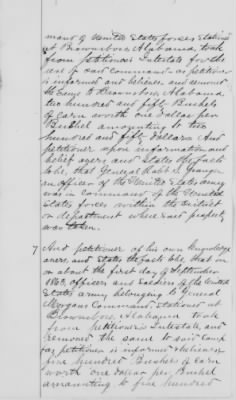 mand of United States forces stationed
at Brownsboro Alabama, took
from petitioners Intestate for the
use of said command as petitioner
is informed and believes and removed
to Camp to Brownsboro Alabama
two hundred and fifty Bushels
of corn worth one dollar per
Bushel amounting to two
hundred and fifty dollars. And
petitioner upon information and
belief avers and states the facts
to be, that General Robt S. Granger
an officer of the United States army
was in command of the United
States forces within the District
or department where said property
was taken.
7 And petitioner of his own knowledge
avers, and states the facts to be, that on
or about the first day of September
1863, officers and soldiers of the United
States army belonging to General
Morgans Command, stationed at
Brownsboro, Alabama took
from petitioners Intestate, and
removed the same to said Camp
as petitioner is informed & believes
five hundred Bushels of corn
worth one dollar per Bushel
amounting to five hundred